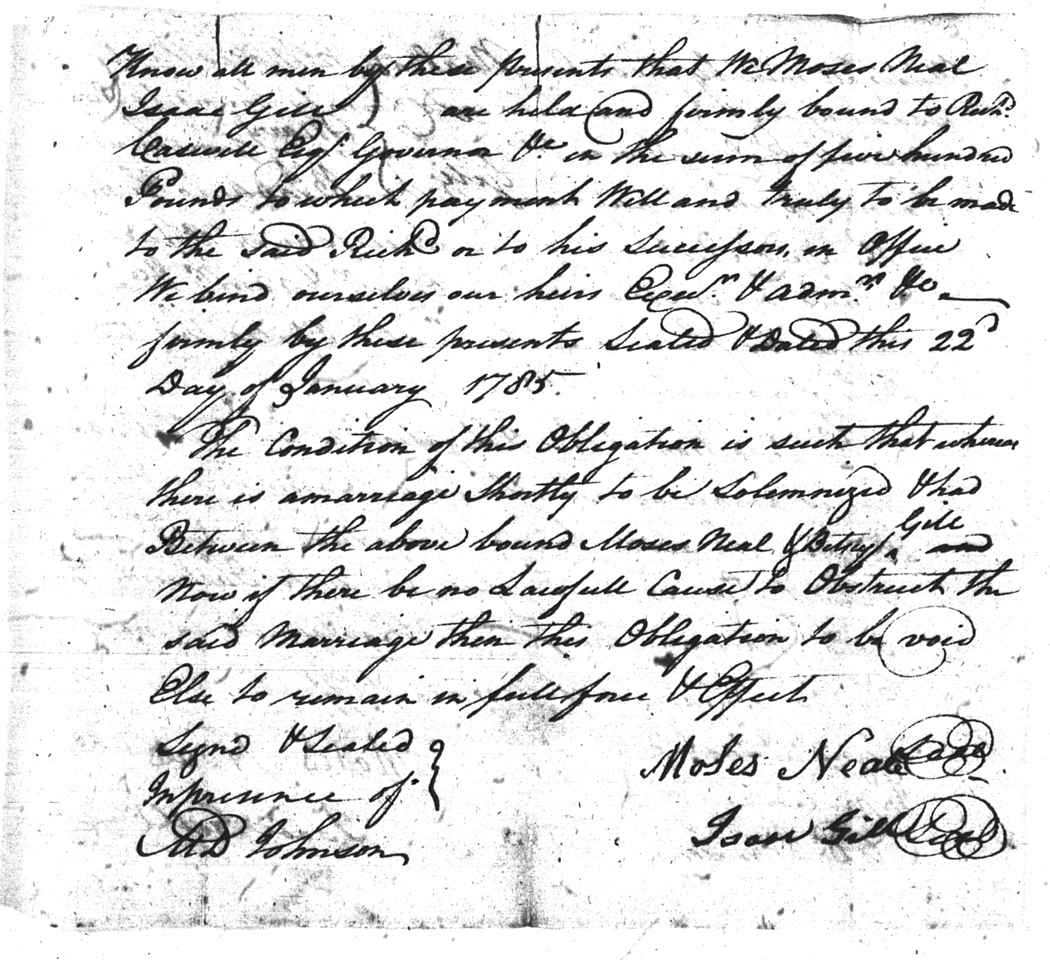 Know all men by these presents that We Moses Neal
Isaac Gill are held and firmly bound to Richd.
Caswell Esqr. Governor &c in the sum of five hundred
Pounds to which payment Well and truly to be made
to the said Richd or to his Successors in Office
We bind ourselves our heirs Execurs & admrs &c.
firmly by these presents Sealed & Dated this 22d
Day of January 1785.
The Condition of this Obligation is such that whereas
there is a marriage Shortly to be Solemnized & had
Between the above bound Moses Neal & Betsy Gill and
Now if there be no Lawfull Cause to Obstruct the
said Marriage then this Obligation to be void
Else to remain in full force & Effect
Signd & Sealed
In presence of
Moses Neal Seal
Isaac Gill Seal
Johnson